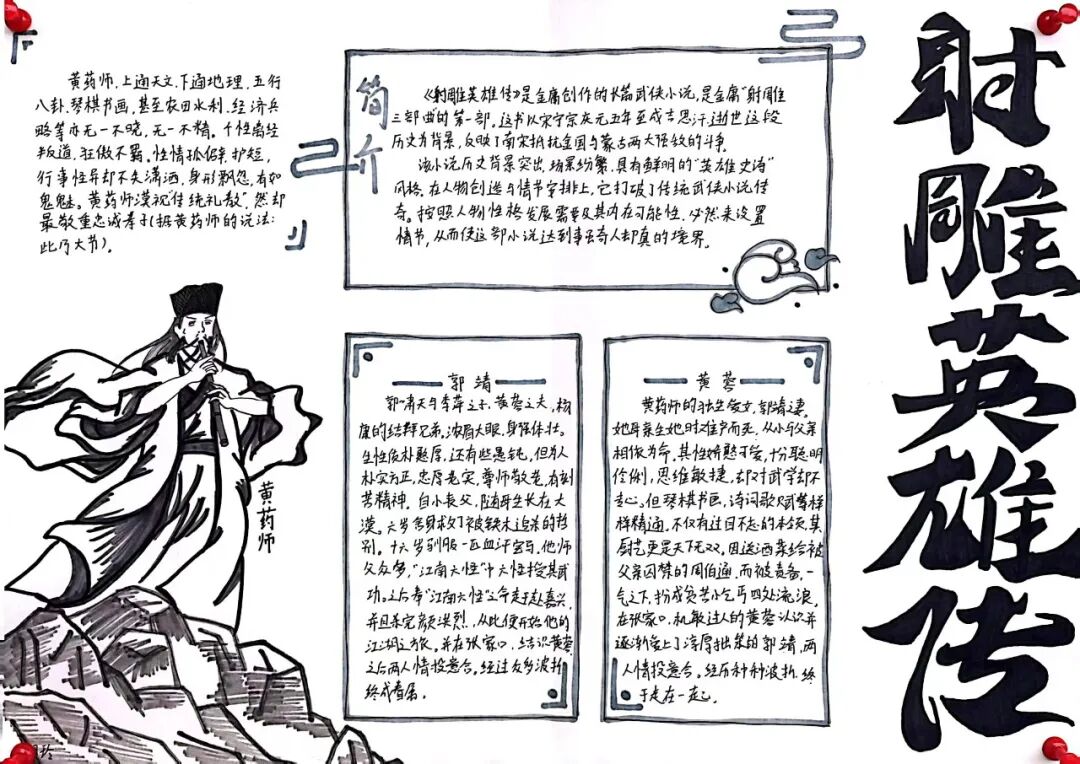 射雕英雄传
黄药师,上通天文,下通地理,五行
八卦、琴棋书画,甚至农田水利、经济兵
略等亦无一不晓,无一不精。个性离经
叛道,狂傲不羁。性情孤僻,护短,
行事怪异却不失潇洒,身形飘忽,有如
鬼魅。黄药师漠视"传统礼教",然却
最敬重忠诚孝子(据黄药师的说法:
此乃大节)。
简介
《射雕英雄传》是金庸创作的长篇武侠小说,是金庸"射雕
三部曲"的第一部,这书以宋宁宗庆元五年至成吉思汗逝世这段
历史为背景,反映了南宋抵抗金国与蒙古两大强敌的斗争。
该小说历史背景突出,场景纷繁,具有鲜明的"英雄史诗"
风格。在人物创造与情节安排上,它打破了传统武侠小说传
奇。按照人物性格发展需要及其内在可能性、必然来设置
情节,从而使这部小说达到事虽奇人却真的境界。
黄药师
郭靖
郭啸天与李萍之子,黄蓉之夫,杨
康的结拜兄弟。浓眉大眼,身强体壮。
生性质朴憨厚,还有些愚钝,但为人
朴实方正,忠厚老实,尊师敬老,有刻
苦精神。自小丧父,随母生长在大
漠。六岁舍身救了被铁木追杀的哲
别。十六岁驯服一匹血汗宝马,他师
父众多,"江南六怪"中六怪授受其武
功。之后奉"江南六怪"之命走赴嘉兴,
并且亲完房,从此便开始他的
江湖之旅,并在张家口,结识黄蓉
之后两人情投意合。经过众多波折
终成眷属。
黄蓉
黄药师的独生爱女,郭靖之妻。
她母亲生她时难产而死,从小与父亲
相依为命。其性娇憨可爱,扮聪明
伶俐,思维敏捷,却对武学却不
专心。但琴棋书画,诗词歌赋等样
样精通,不仅有过目不忘的本领,其
厨艺更是天下无双。因送酒菜给被
父亲囚禁的周伯通,而被责备,一
气之下,扮成贫苦小乞丐四处流浪。
在张家口,机敏过人的黄蓉认识并
逐渐爱上了淳厚拙朴的郭靖,两
人情投意合。经历种种波折,终
于走在一起。